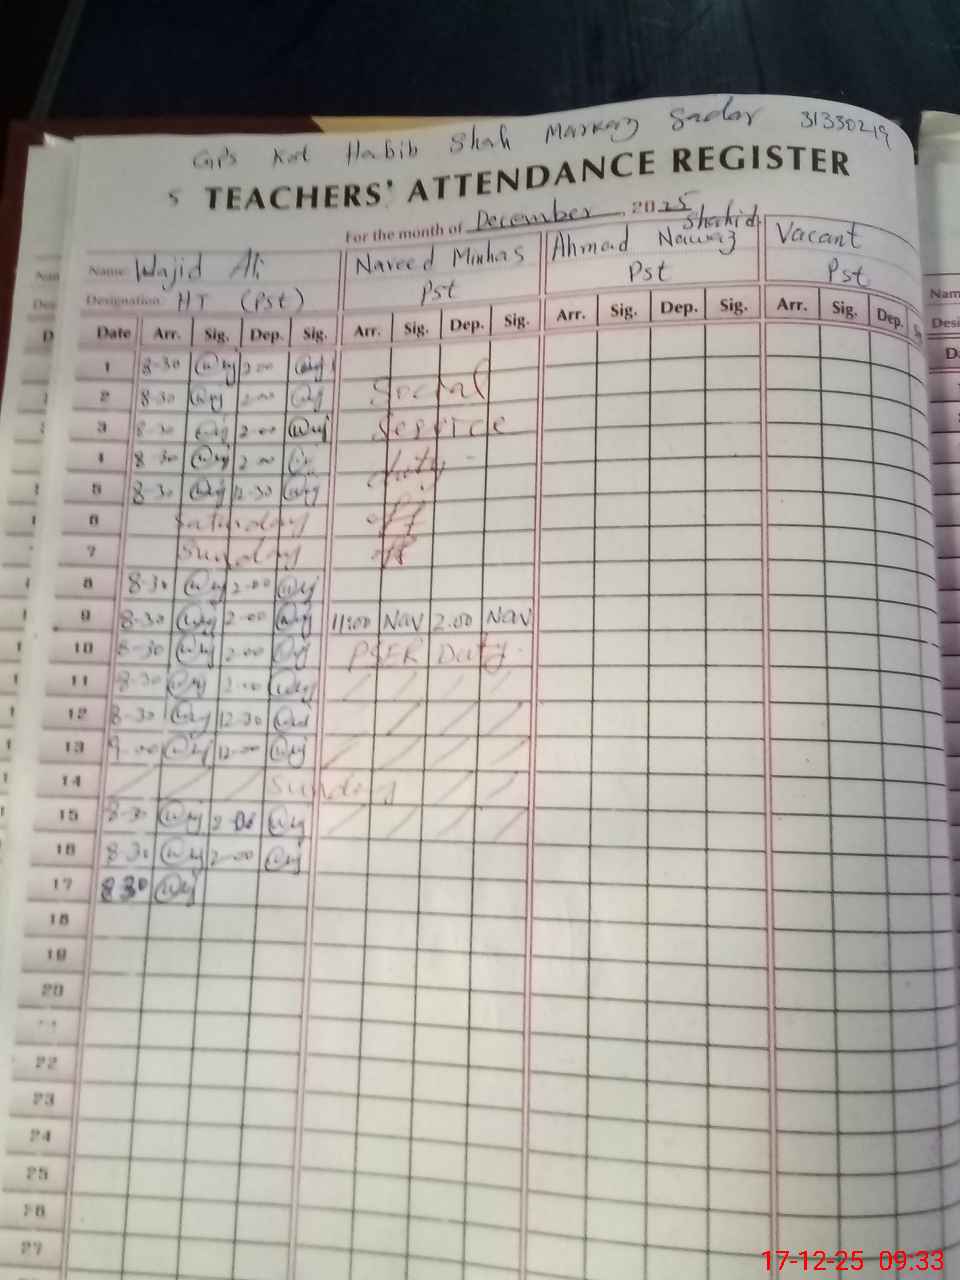 GPS Kot Habib Shah Markaz Sadar 31330219
5 TEACHERS' ATTENDANCE REGISTER
For the month of December 2025
Name: Wajid Ali Naveed Minhas Ahmad Nawaz Shahid Vacant
Designation: HT (Pst) Pst Pst Pst
Date Arr. Sig. Dep. Sig. Arr. Sig. Dep. Sig. Arr. Sig. Dep. Sig. Arr. Sig. Dep.
1 8-30 2-00
2 8-30 2-00 Social
3 8-30 2-00 Service
4 8-30 2-00 duty
5 8-30 12-30
6 Saturday off
7 Sunday off
8 8-30 2-00
9 8-30 2-00 11:00 Nav 2.00 Nav
10 8-30 2-00 PSER Duty
11 8-30 2-00
12 8-30 12-30
13 9-00 12-00
14 Sunday
15 8-30 2-00
16 8-30 2-00
17 830
18
19
20
22
23
24
25
26
27
17-12-25 09:33